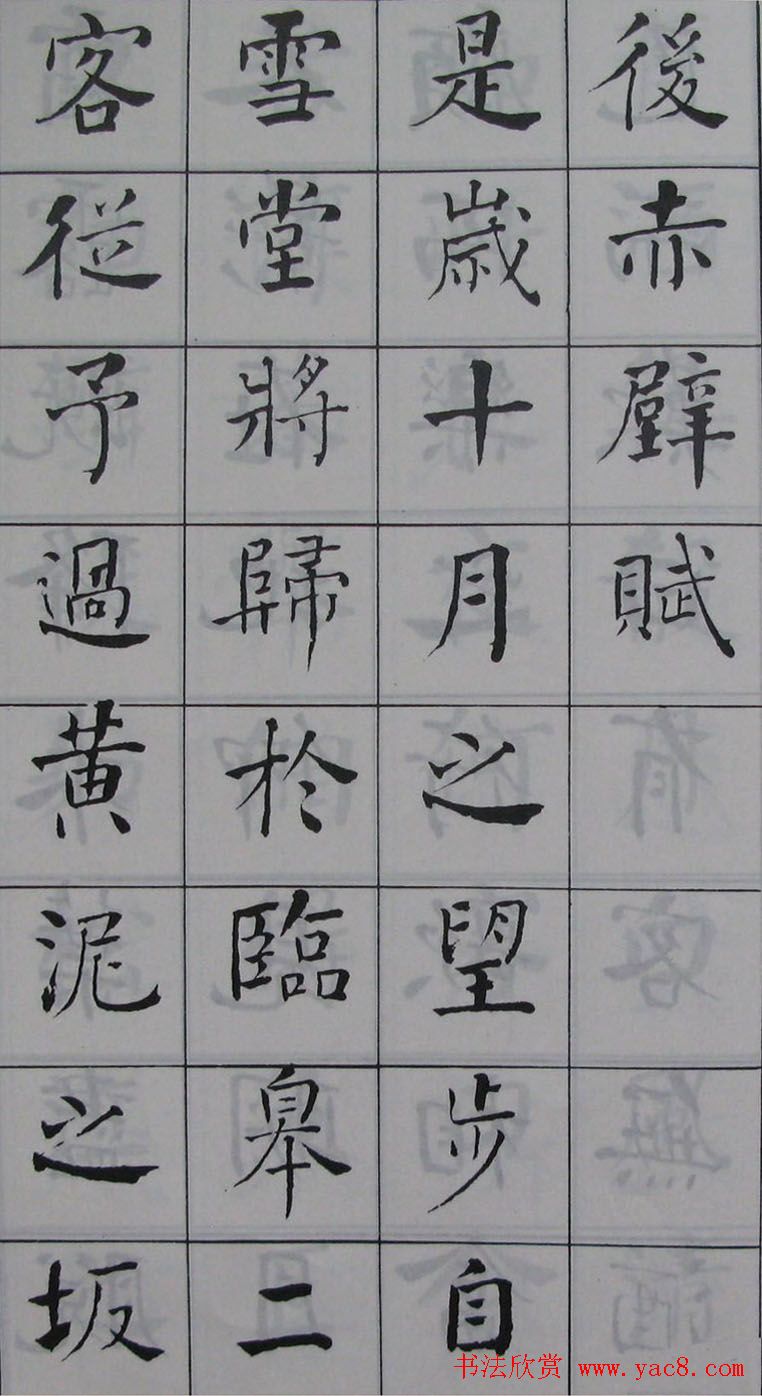 後赤壁賦
是歲十月之望步自
雪堂將歸於臨皋二
客從予過黃泥之坂
书法欣赏 www.yac8.com